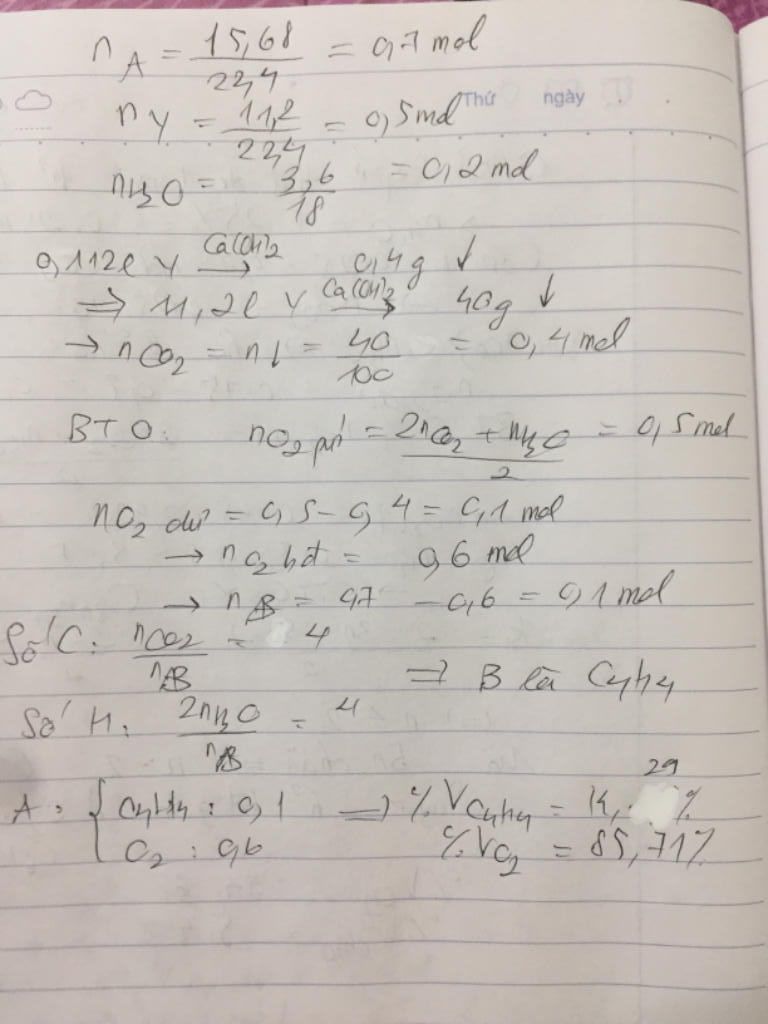 nA = 15,68/22,4 = 0,7 mol
Thứ ngày
nY = 11,2/22,4 = 0,5 mol
nH2O = 3,6/18 = 0,2 mol
0,112l Y Ca(OH)2 → 0,4g ↓
⇒ 11,2l Y Ca(OH)2 → 40g ↓
→ nCO2 = n↓ = 40/100 = 0,4 mol
BTO: nO2 pứ = (2nCO2 + nH2O)/2 = 0,5 mol
nO2 dư = 0,5 - 0,4 = 0,1 mol
→ nO2 bđ = 0,6 mol
→ nB = 0,7 - 0,6 = 0,1 mol
Số C: nCO2/nB = 4
⇒ B là C4H4
Số H: 2nH2O/nB = 4
A: { C4H4: 0,1 ⇒ %VC4H4 = 14,29%
O2: 0,6 %VO2 = 85,71%